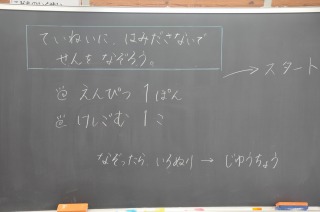 ていねいに、はみださないで
せんを なぞろう。
→ スタート
えんぴつ 1 ぽん
けしごむ 1 こ
なぞったら いろぬり → じゆうちょう